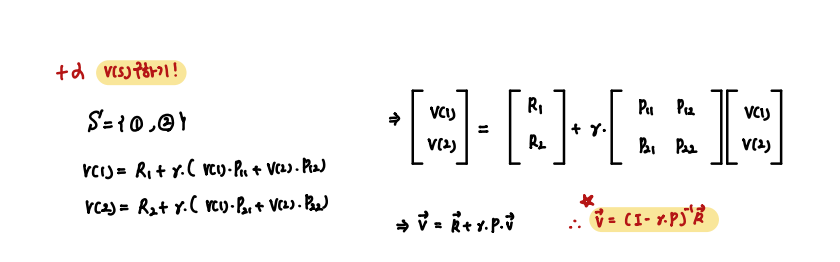 +α V(s) 구하기!
S = { ①, ② }
V(1) = R₁ + γ·( V(1)·P₁₁ + V(2)·P₁₂)
V(2) = R₂ + γ·( V(1)·P₂₁ + V(2)·P₂₂)
⇒ [V(1) V(2)] = [R₁ R₂] + γ·[P₁₁ P₁₂ P₂₁ P₂₂][V(1) V(2)]
⇒ V⃗ = R⃗ + γ·P·V⃗
∴ V⃗ = (I - γ·P)⁻¹ R⃗